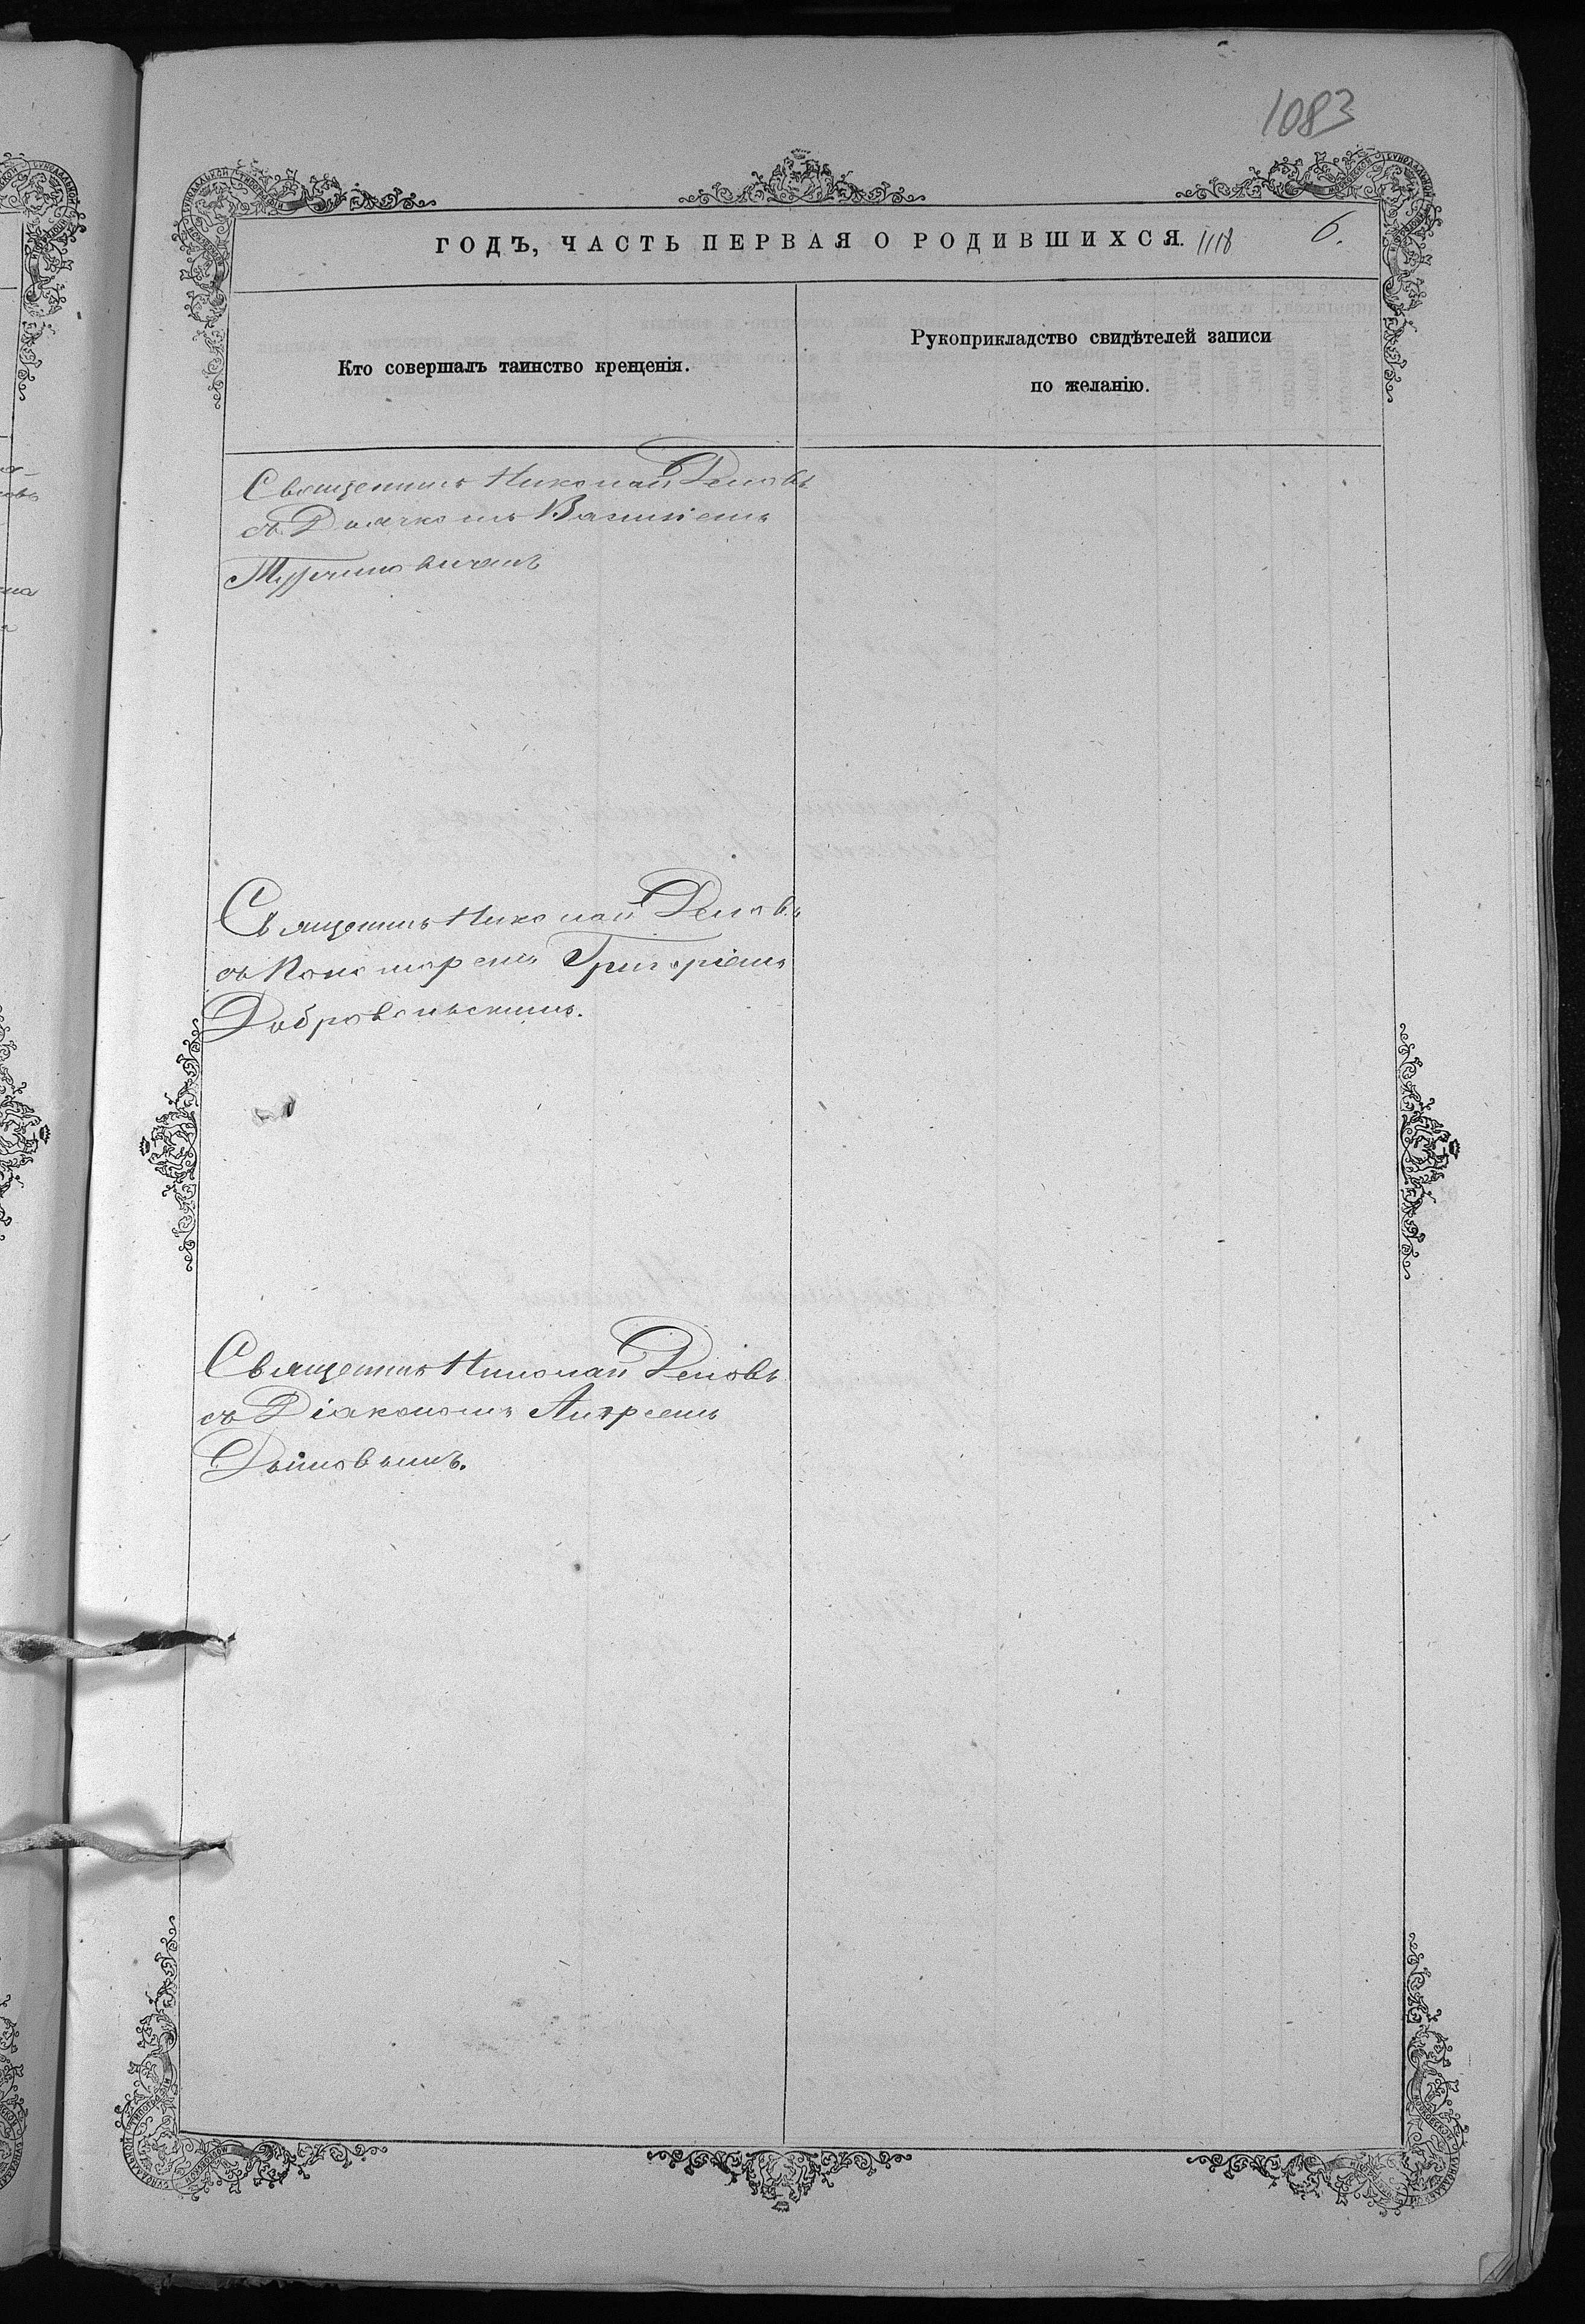 1083
ГОДЪ, ЧАСТЬ ПЕРВАЯ О РОДИВШИХСЯ. 1118 6.
Кто совершалъ таинство крещенія.
Рукоприкладство свидѣтелей записи
по желанію.
Священникъ Николай
съ Дьячкомъ Василіемъ
Священникъ Николай
съ Пономаремъ Григоріемъ
Добровольскимъ.
Священникъ Николай
съ Діакономъ Андреемъ